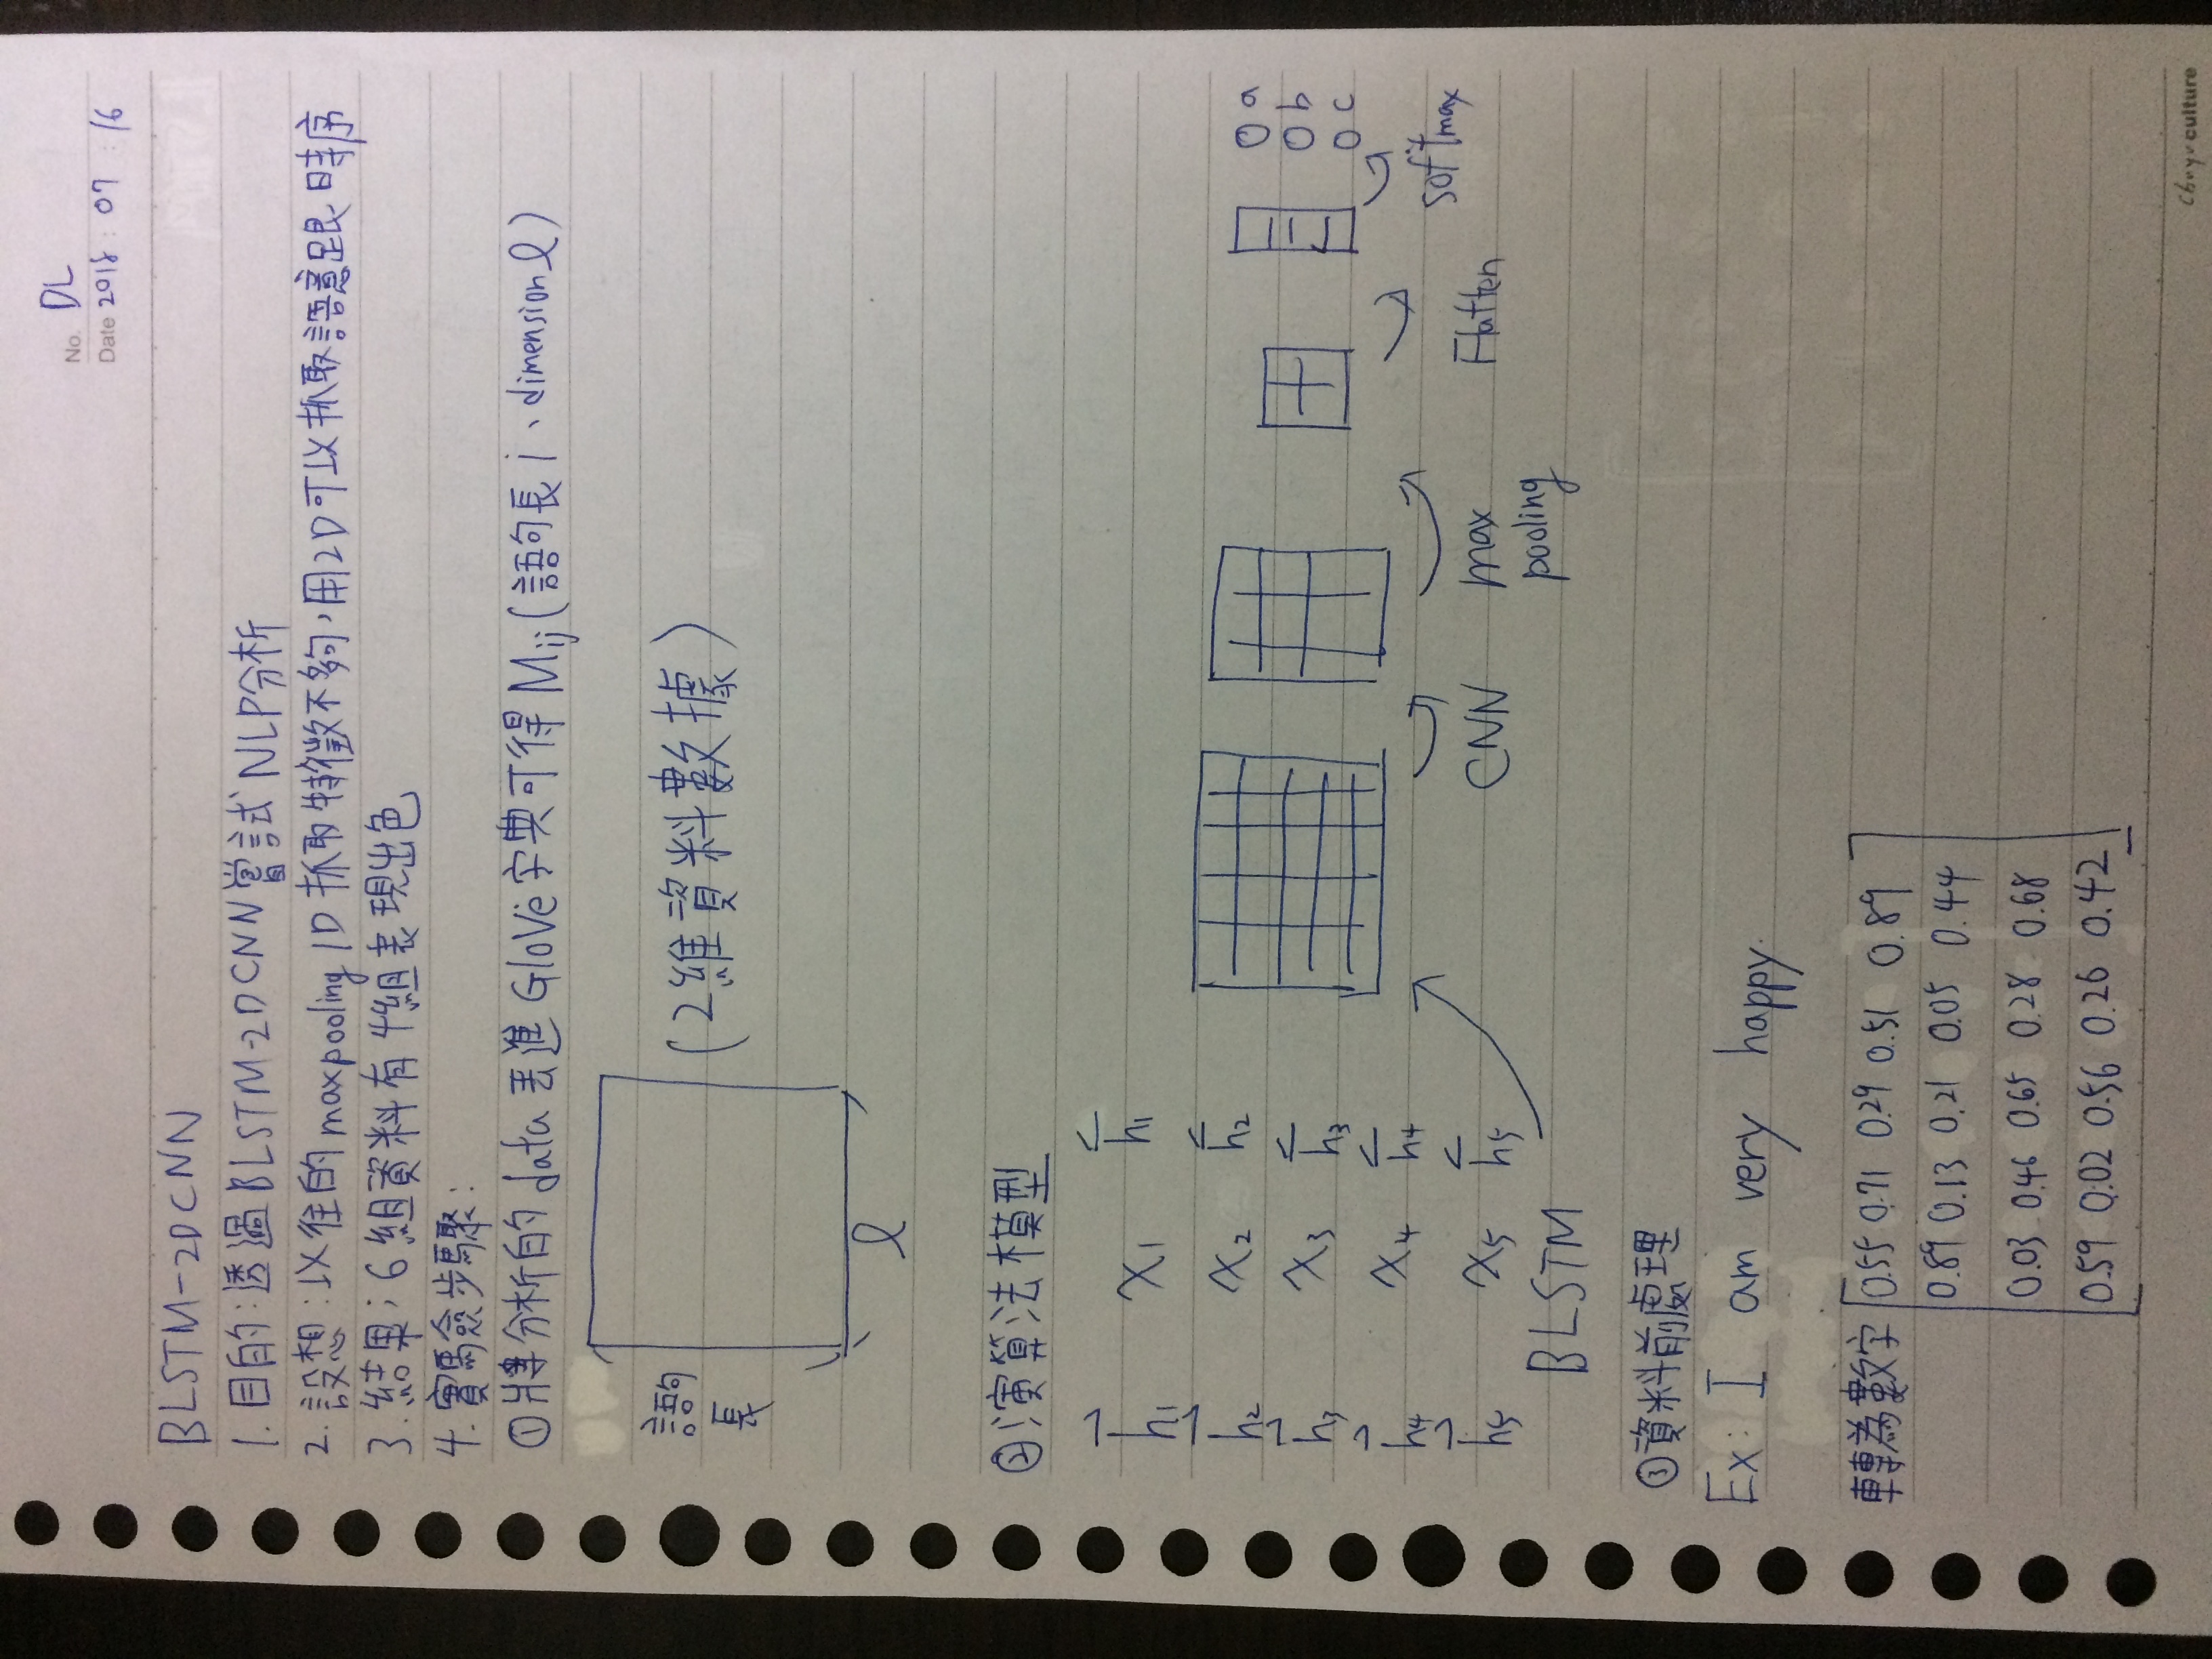 No. DL
Date 2018 : 07 : 16
BLSTM-2DCNN
1. 目的:透過BLSTM-2DCNN嘗試NLP分析
2. 設想:以往的maxpooling 1D 抓取特徵不夠,用2D可以抓取語意跟時序
3. 結果:6組資料有4組表現出色
4. 實驗步驟:
①將分析的data丟進GloVe字典可得Mij(語句長i、dimension l)
語句
長
(2維資料數據)
l
②演算法模型
h1 x1 h1
h2 x2 h2
h3 x3 h3
h4 x4 h4
h5 x5 h5
BLSTM
CNN
max
pooling
Flatten
softmax
a
b
c
③資料前處理
Ex: I am very happy.
轉為數字
0.55 0.71 0.29 0.51 0.89
0.89 0.13 0.21 0.05 0.44
0.03 0.46 0.65 0.28 0.68
0.59 0.02 0.56 0.26 0.42
culture